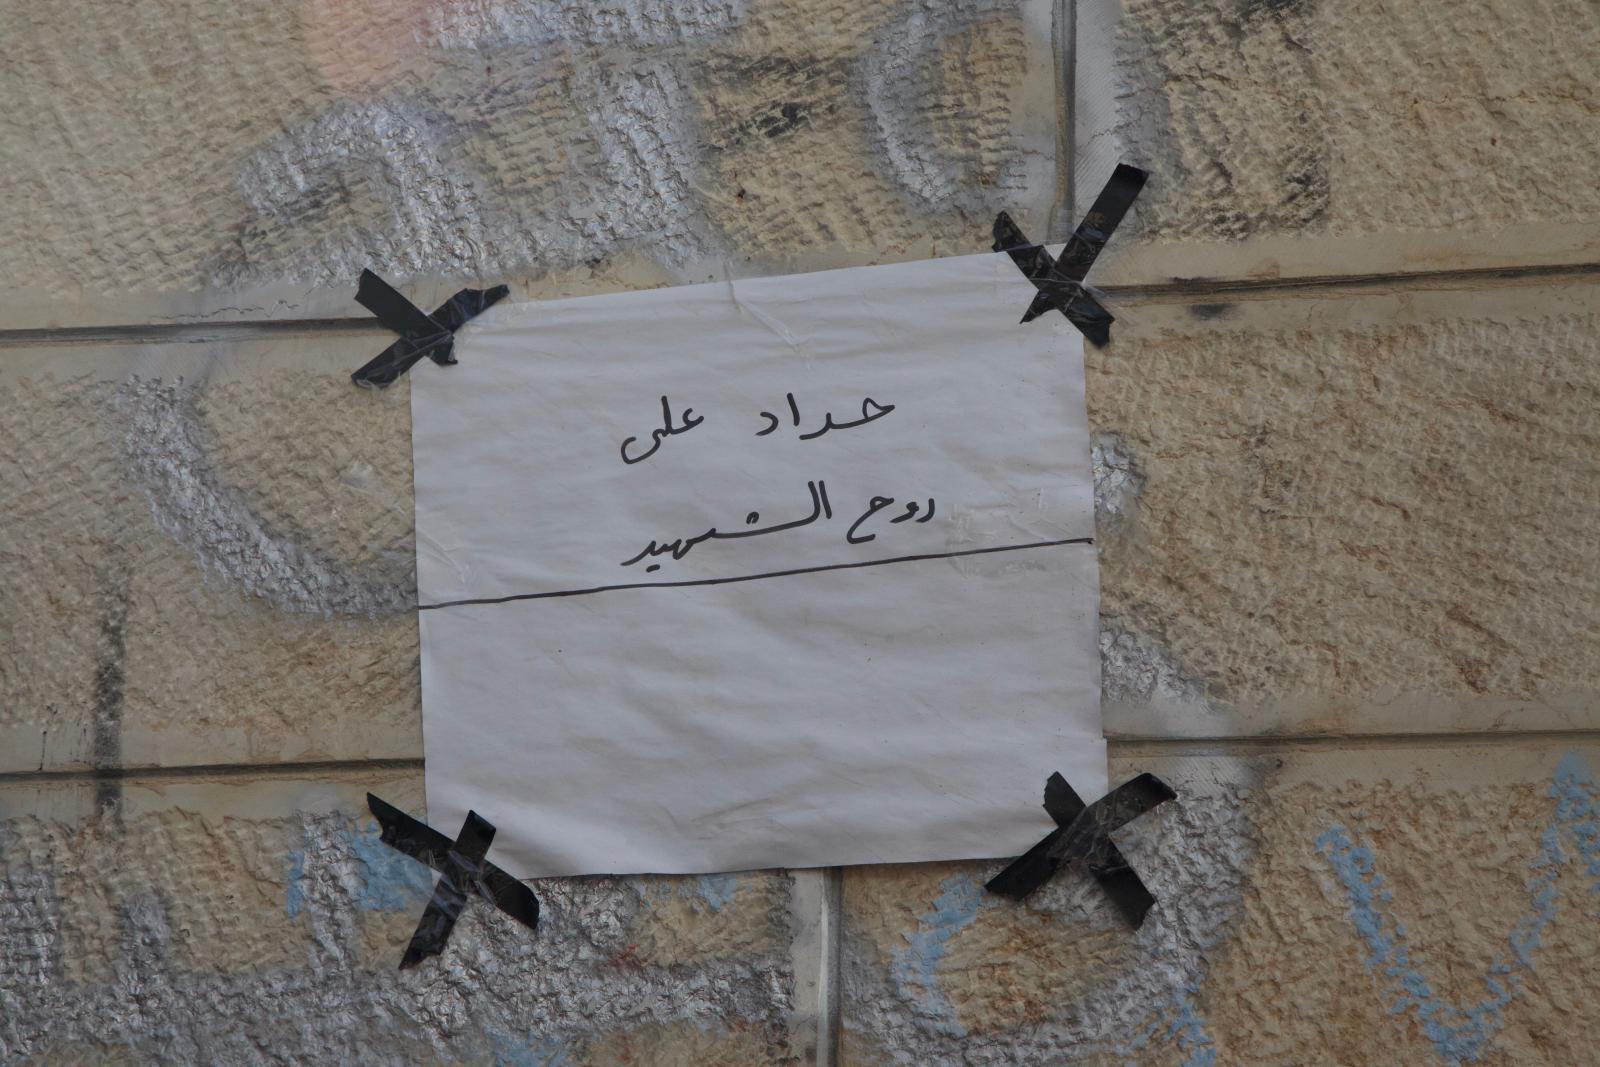 حداد على
روح الشهيد